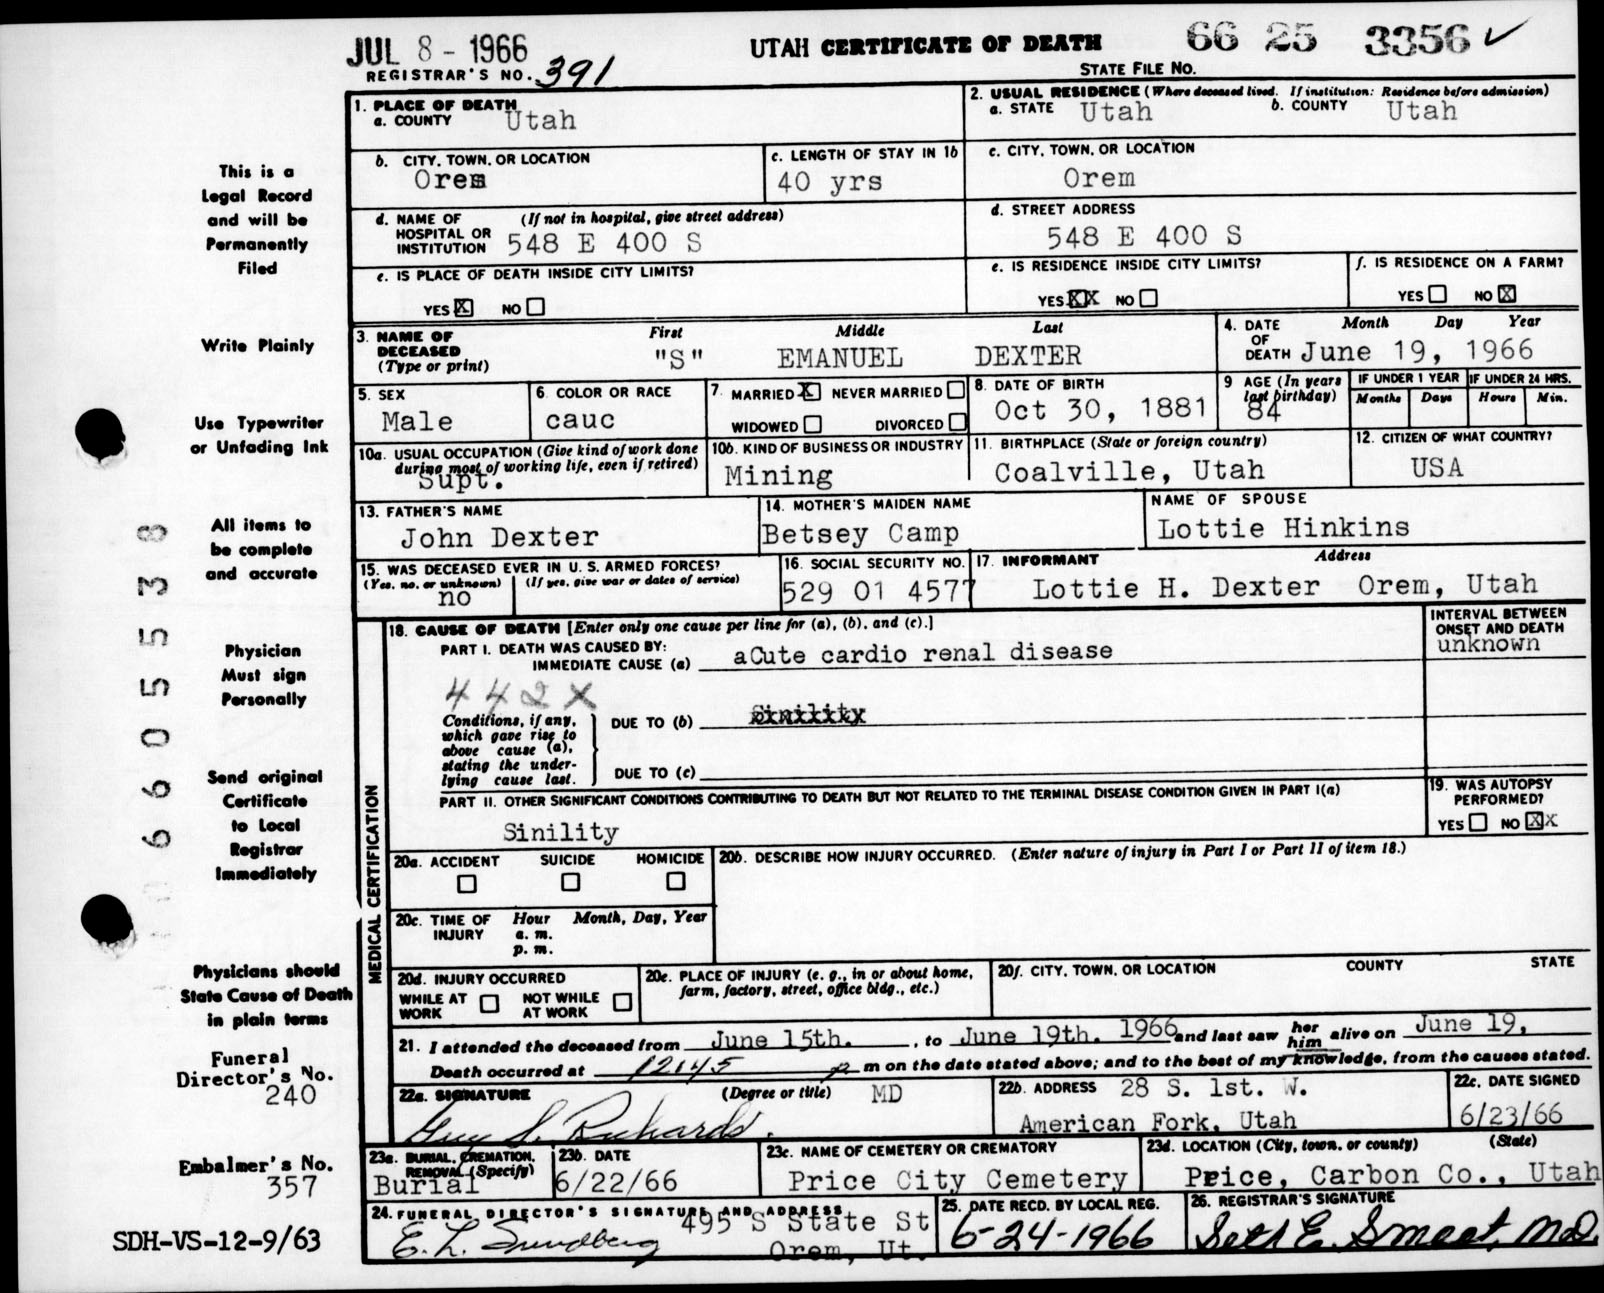 JUL 8 - 1966
REGISTRAR'S NO. 391
UTAH CERTIFICATE OF DEATH
66 25 3356 ✓
STATE FILE NO.
This is a
Legal Record
and will be
Permanently
Filed
Write Plainly
Use Typewriter
or Unfading Ink
All items to
be complete
and accurate
Physician
Must sign
Personally
Send original
Certificate
to Local
Registrar
Immediately
Physicians should
State Cause of Death
in plain terms
Funeral
Director's No.
240
Embalmer's No.
357
SDH-VS-12-9/63
66055538
1. PLACE OF DEATH
a. COUNTY Utah
2. USUAL RESIDENCE (Where deceased lived. If institution: Residence before admission)
a. STATE Utah b. COUNTY Utah
b. CITY, TOWN, OR LOCATION
Orem
c. LENGTH OF STAY IN 1b
40 yrs
c. CITY, TOWN, OR LOCATION
Orem
d. NAME OF HOSPITAL OR INSTITUTION (If not in hospital, give street address)
548 E 400 S
d. STREET ADDRESS
548 E 400 S
e. IS PLACE OF DEATH INSIDE CITY LIMITS?
YES X NO
e. IS RESIDENCE INSIDE CITY LIMITS?
YES XX NO
f. IS RESIDENCE ON A FARM?
YES NO X
3. NAME OF DECEASED (Type or print)
First Middle Last
"S" EMANUEL DEXTER
4. DATE OF DEATH Month Day Year
June 19, 1966
5. SEX
Male
6. COLOR OR RACE
cauc
7. MARRIED X NEVER MARRIED
WIDOWED DIVORCED
8. DATE OF BIRTH
Oct 30, 1881
9 AGE (In years last birthday)
84
IF UNDER 1 YEAR
Months Days
IF UNDER 24 HRS.
Hours Min.
10a. USUAL OCCUPATION (Give kind of work done
during most of working life, even if retired)
Supt.
10b. KIND OF BUSINESS OR INDUSTRY
Mining
11. BIRTHPLACE (State or foreign country)
Coalville, Utah
12. CITIZEN OF WHAT COUNTRY?
USA
13. FATHER'S NAME
John Dexter
14. MOTHER'S MAIDEN NAME
Betsey Camp
NAME OF SPOUSE
Lottie Hinkins
15. WAS DECEASED EVER IN U. S. ARMED FORCES?
(Yes, no, or unknown) (If yes, give war or dates of service)
no
16. SOCIAL SECURITY NO.
529 01 4577
17. INFORMANT Address
Lottie H. Dexter Orem, Utah
MEDICAL CERTIFICATION
18. CAUSE OF DEATH [Enter only one cause per line for (a), (b), and (c).]
INTERVAL BETWEEN
ONSET AND DEATH
unknown
PART I. DEATH WAS CAUSED BY:
IMMEDIATE CAUSE (a) aCute cardio renal disease
442X
Conditions, if any,
which gave rise to
above cause (a),
stating the under-
lying cause last.
DUE TO (b) Sinility
DUE TO (c)
PART II. OTHER SIGNIFICANT CONDITIONS CONTRIBUTING TO DEATH BUT NOT RELATED TO THE TERMINAL DISEASE CONDITION GIVEN IN PART I(a)
Sinility
19. WAS AUTOPSY
PERFORMED?
YES NO XX
20a. ACCIDENT SUICIDE HOMICIDE
20b. DESCRIBE HOW INJURY OCCURRED. (Enter nature of injury in Part I or Part II of item 18.)
20c. TIME OF INJURY Hour Month, Day, Year
a. m.
p. m.
20d. INJURY OCCURRED
WHILE AT WORK NOT WHILE AT WORK
20e. PLACE OF INJURY (e. g., in or about home,
farm, factory, street, office bldg., etc.)
20f. CITY, TOWN, OR LOCATION COUNTY STATE
21. I attended the deceased from June 15th. , to June 19th. 1966 and last saw her him alive on June 19,
Death occurred at 12:45 p m on the date stated above; and to the best of my knowledge, from the causes stated.
22a. SIGNATURE (Degree or title) MD
Guy S. Richards.
22b. ADDRESS 28 S. 1st. W.
American Fork, Utah
22c. DATE SIGNED
6/23/66
23a. BURIAL, CREMATION,
REMOVAL (Specify)
Burial
23b. DATE
6/22/66
23c. NAME OF CEMETERY OR CREMATORY
Price City Cemetery
23d. LOCATION (City, town, or county) (State)
Price, Carbon Co., Utah
24. FUNERAL DIRECTOR'S SIGNATURE AND ADDRESS
E. L. Sundberg 495 S State St
Orem, Ut.
25. DATE RECD. BY LOCAL REG.
6-24-1966
26. REGISTRAR'S SIGNATURE
Seth E. Smoot, MD.